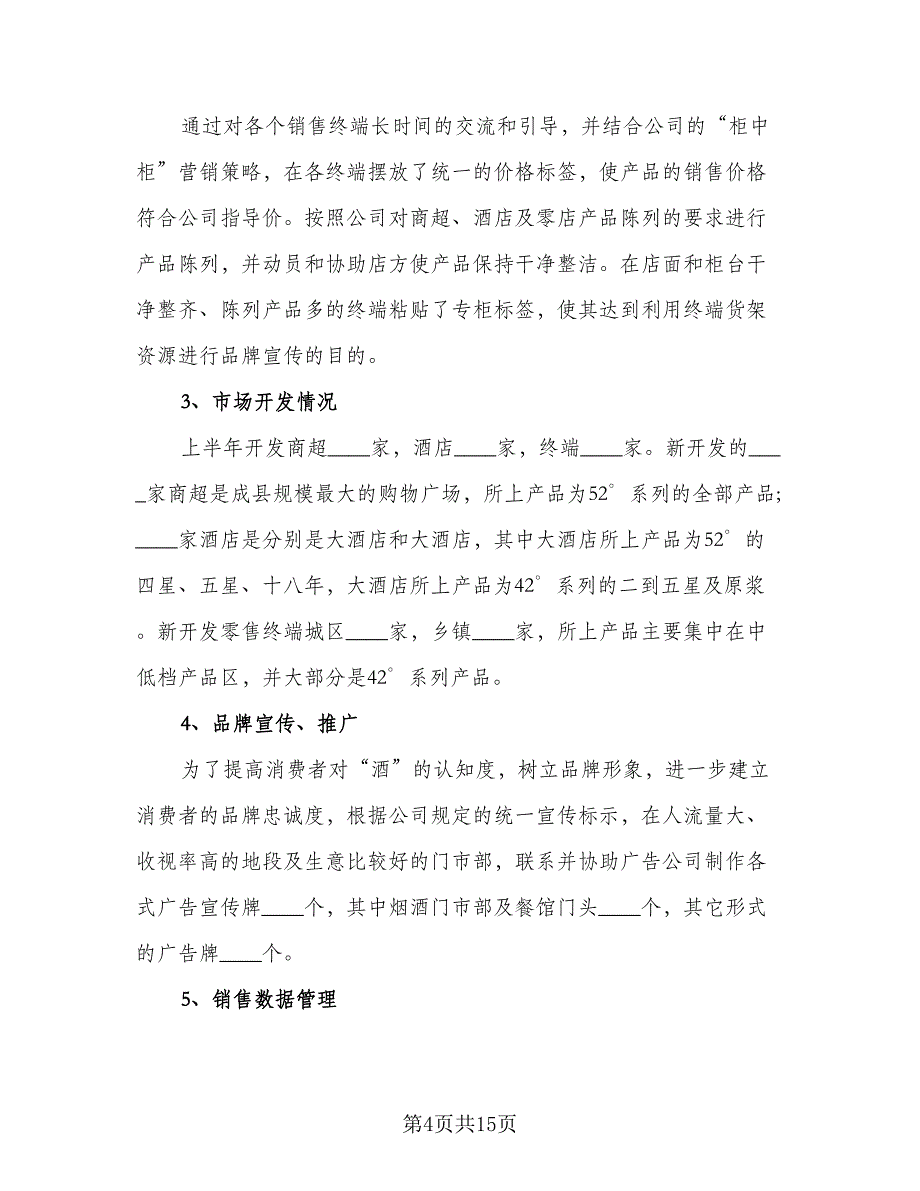 通过对各个销售终端长时间的交流和引导，并结合公司的“柜中
柜”营销策略，在各终端摆放了统一的价格标签，使产品的销售价格
符合公司指导价。按照公司对商超、酒店及零店产品陈列的要求进行
产品陈列，并动员和协助店方使产品保持干净整洁。在店面和柜台干
净整齐、陈列产品多的终端粘贴了专柜标签，使其达到利用终端货架
资源进行品牌宣传的目的。
3、市场开发情况
上半年开发商超____家，酒店____家，终端____家。新开发的___
_家商超是成县规模最大的购物广场，所上产品为52°系列的全部产品；
____家酒店是分别是大酒店和大酒店，其中大酒店所上产品为52°的
四星、五星、十八年，大酒店所上产品为42°系列的二到五星及原浆
。新开发零售终端城区____家，乡镇____家，所上产品主要集中在中
低档产品区，并大部分是42°系列产品。
4、品牌宣传、推广
为了提高消费者对“酒”的认知度，树立品牌形象，进一步建立
消费者的品牌忠诚度，根据公司规定的统一宣传标示，在人流量大、
收视率高的地段及生意比较好的门市部，联系并协助广告公司制作各
式广告宣传牌____个，其中烟酒门市部及餐馆门头____个，其它形式
的广告牌____个。
5、销售数据管理
第4页共15页